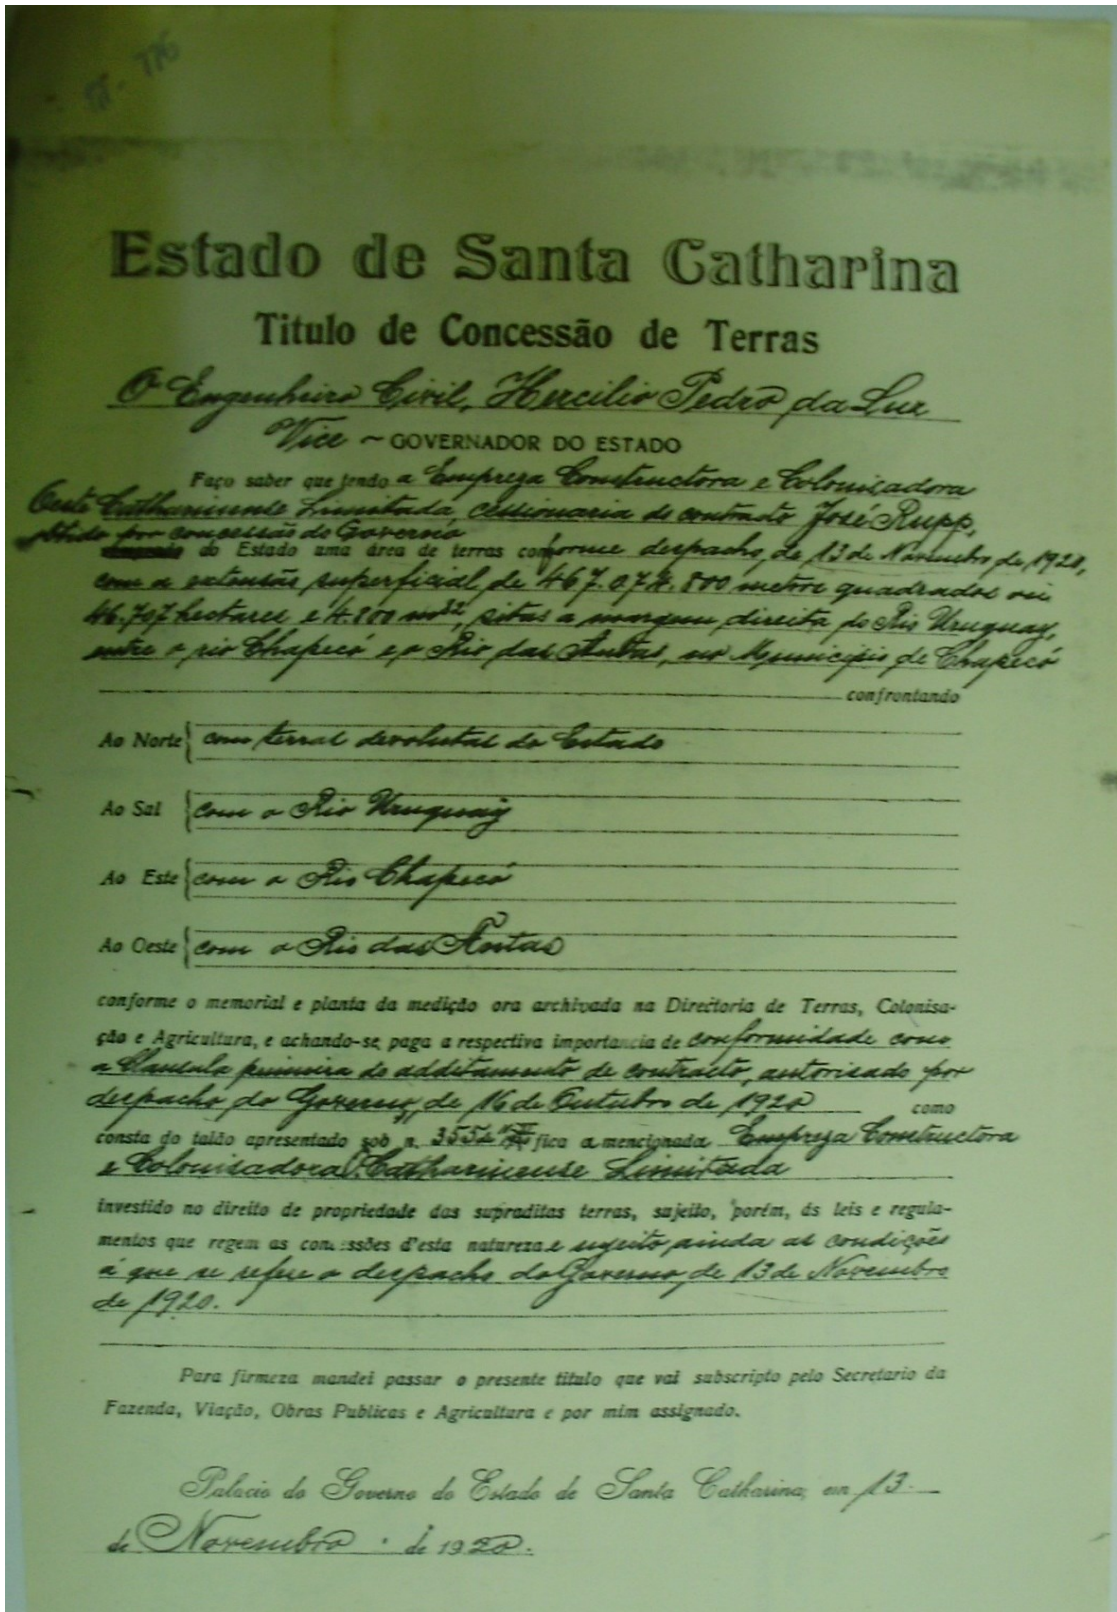 Estado de Santa Catharina
Titulo de Concessão de Terras
O Engenheiro Civil, Hercilio Pedro da Luz
Vice ~ GOVERNADOR DO ESTADO
Faço saber que tendo a Empreza Constructora e Colonisadora
Oeste Catharinense Limitada, cessionaria do contracto José Rupp,
obtido por concessão do Governo
do Estado uma área de terras conforme despacho, de 13 de Novembro de 1920,
com a extensão superficial, de 467.074.800 metros quadrados ou
46.707 hectares e 4.800 ms2, sitas a margem direita do Rio Uruguay,
entre o rio Chapecó e o Rio das Antas, no Municipio de Chapecó
confrontando
Ao Norte { com terras devolutas do Estado
Ao Sul { com o Rio Uruguay
Ao Este { com o Rio Chapecó
Ao Oeste { com o Rio das Antas
conforme o memorial e planta da medição ora archivada na Directoria de Terras, Colonisa-
ção e Agricultura, e achando-se paga a respectiva importancia de conformidade com
a Clausula primeira do additamento de contracto, autorisado por
despacho do Governo, de 16 de Outubro de 1920 como
consta do talão apresentado sob n. fica a mencionada Empreza Constructora
e Colonisadora O. Catharinense Limitada
investido no direito de propriedade das supraditas terras, sujeito, porém, ás leis e regula-
mentos que regem as concessões d'esta natureza e sujeito ainda as condições
á que se refere o despacho do Governo, de 13 de Novembro
de 1920.
Para firmeza mandei passar o presente titulo que vai subscripto pelo Secretario da
Fazenda, Viação, Obras Publicas e Agricultura e por mim assignado.
Palacio do Governo do Estado de Santa Catharina, em 13
de Novembro de 1920.